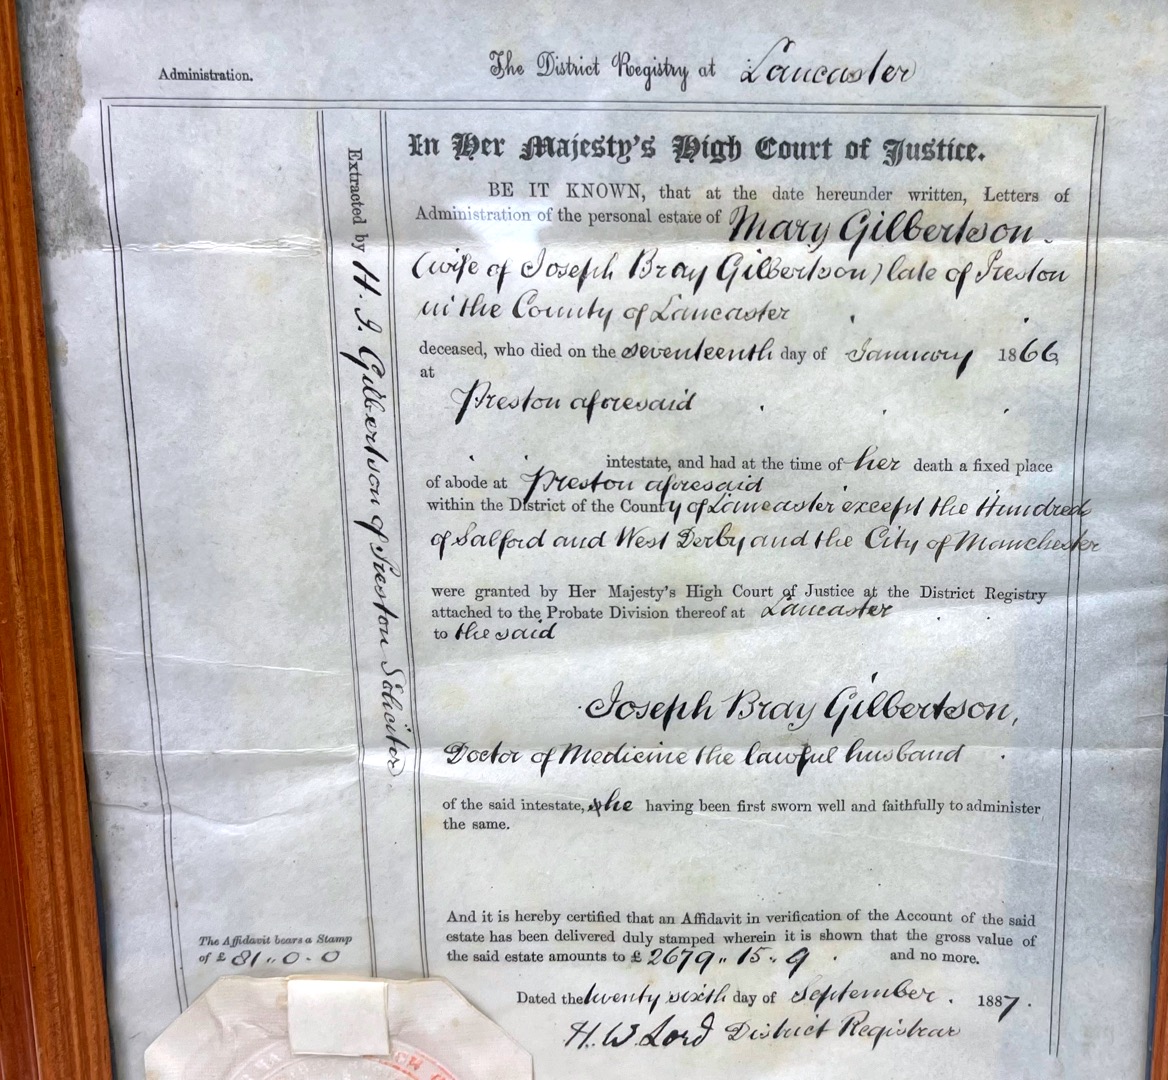 Administration.
The District Registry at Lancaster
In Her Majesty's High Court of Justice.
BE IT KNOWN, that at the date hereunder written, Letters of
Administration of the personal estate of Mary Gilbertson.
(wife of Joseph Bray Gilbertson) late of Preston
in the County of Lancaster
deceased, who died on the seventeenth day of January 1866
at
Preston aforesaid
intestate, and had at the time of her death a fixed place
of abode at Preston aforesaid
within the District of the County of Lancaster except the Hundreds
of Salford and West Derby and the City of Manchester
were granted by Her Majesty's High Court of Justice at the District Registry
attached to the Probate Division thereof at Lancaster
to the said
Joseph Bray Gilbertson,
Doctor of Medicine the lawful husband
of the said intestate, he having been first sworn well and faithfully to administer
the same.
And it is hereby certified that an Affidavit in verification of the Account of the said
estate has been delivered duly stamped wherein it is shown that the gross value of
the said estate amounts to £ 2679,, 15,, 9 and no more.
Dated the twenty sixth day of September. 1887.
H. W. Lord District Registrar
Extracted by H. I. Gilbertson of Preston Solicitor
The Affidavit bears a Stamp
of £ 81,, 0 - 0